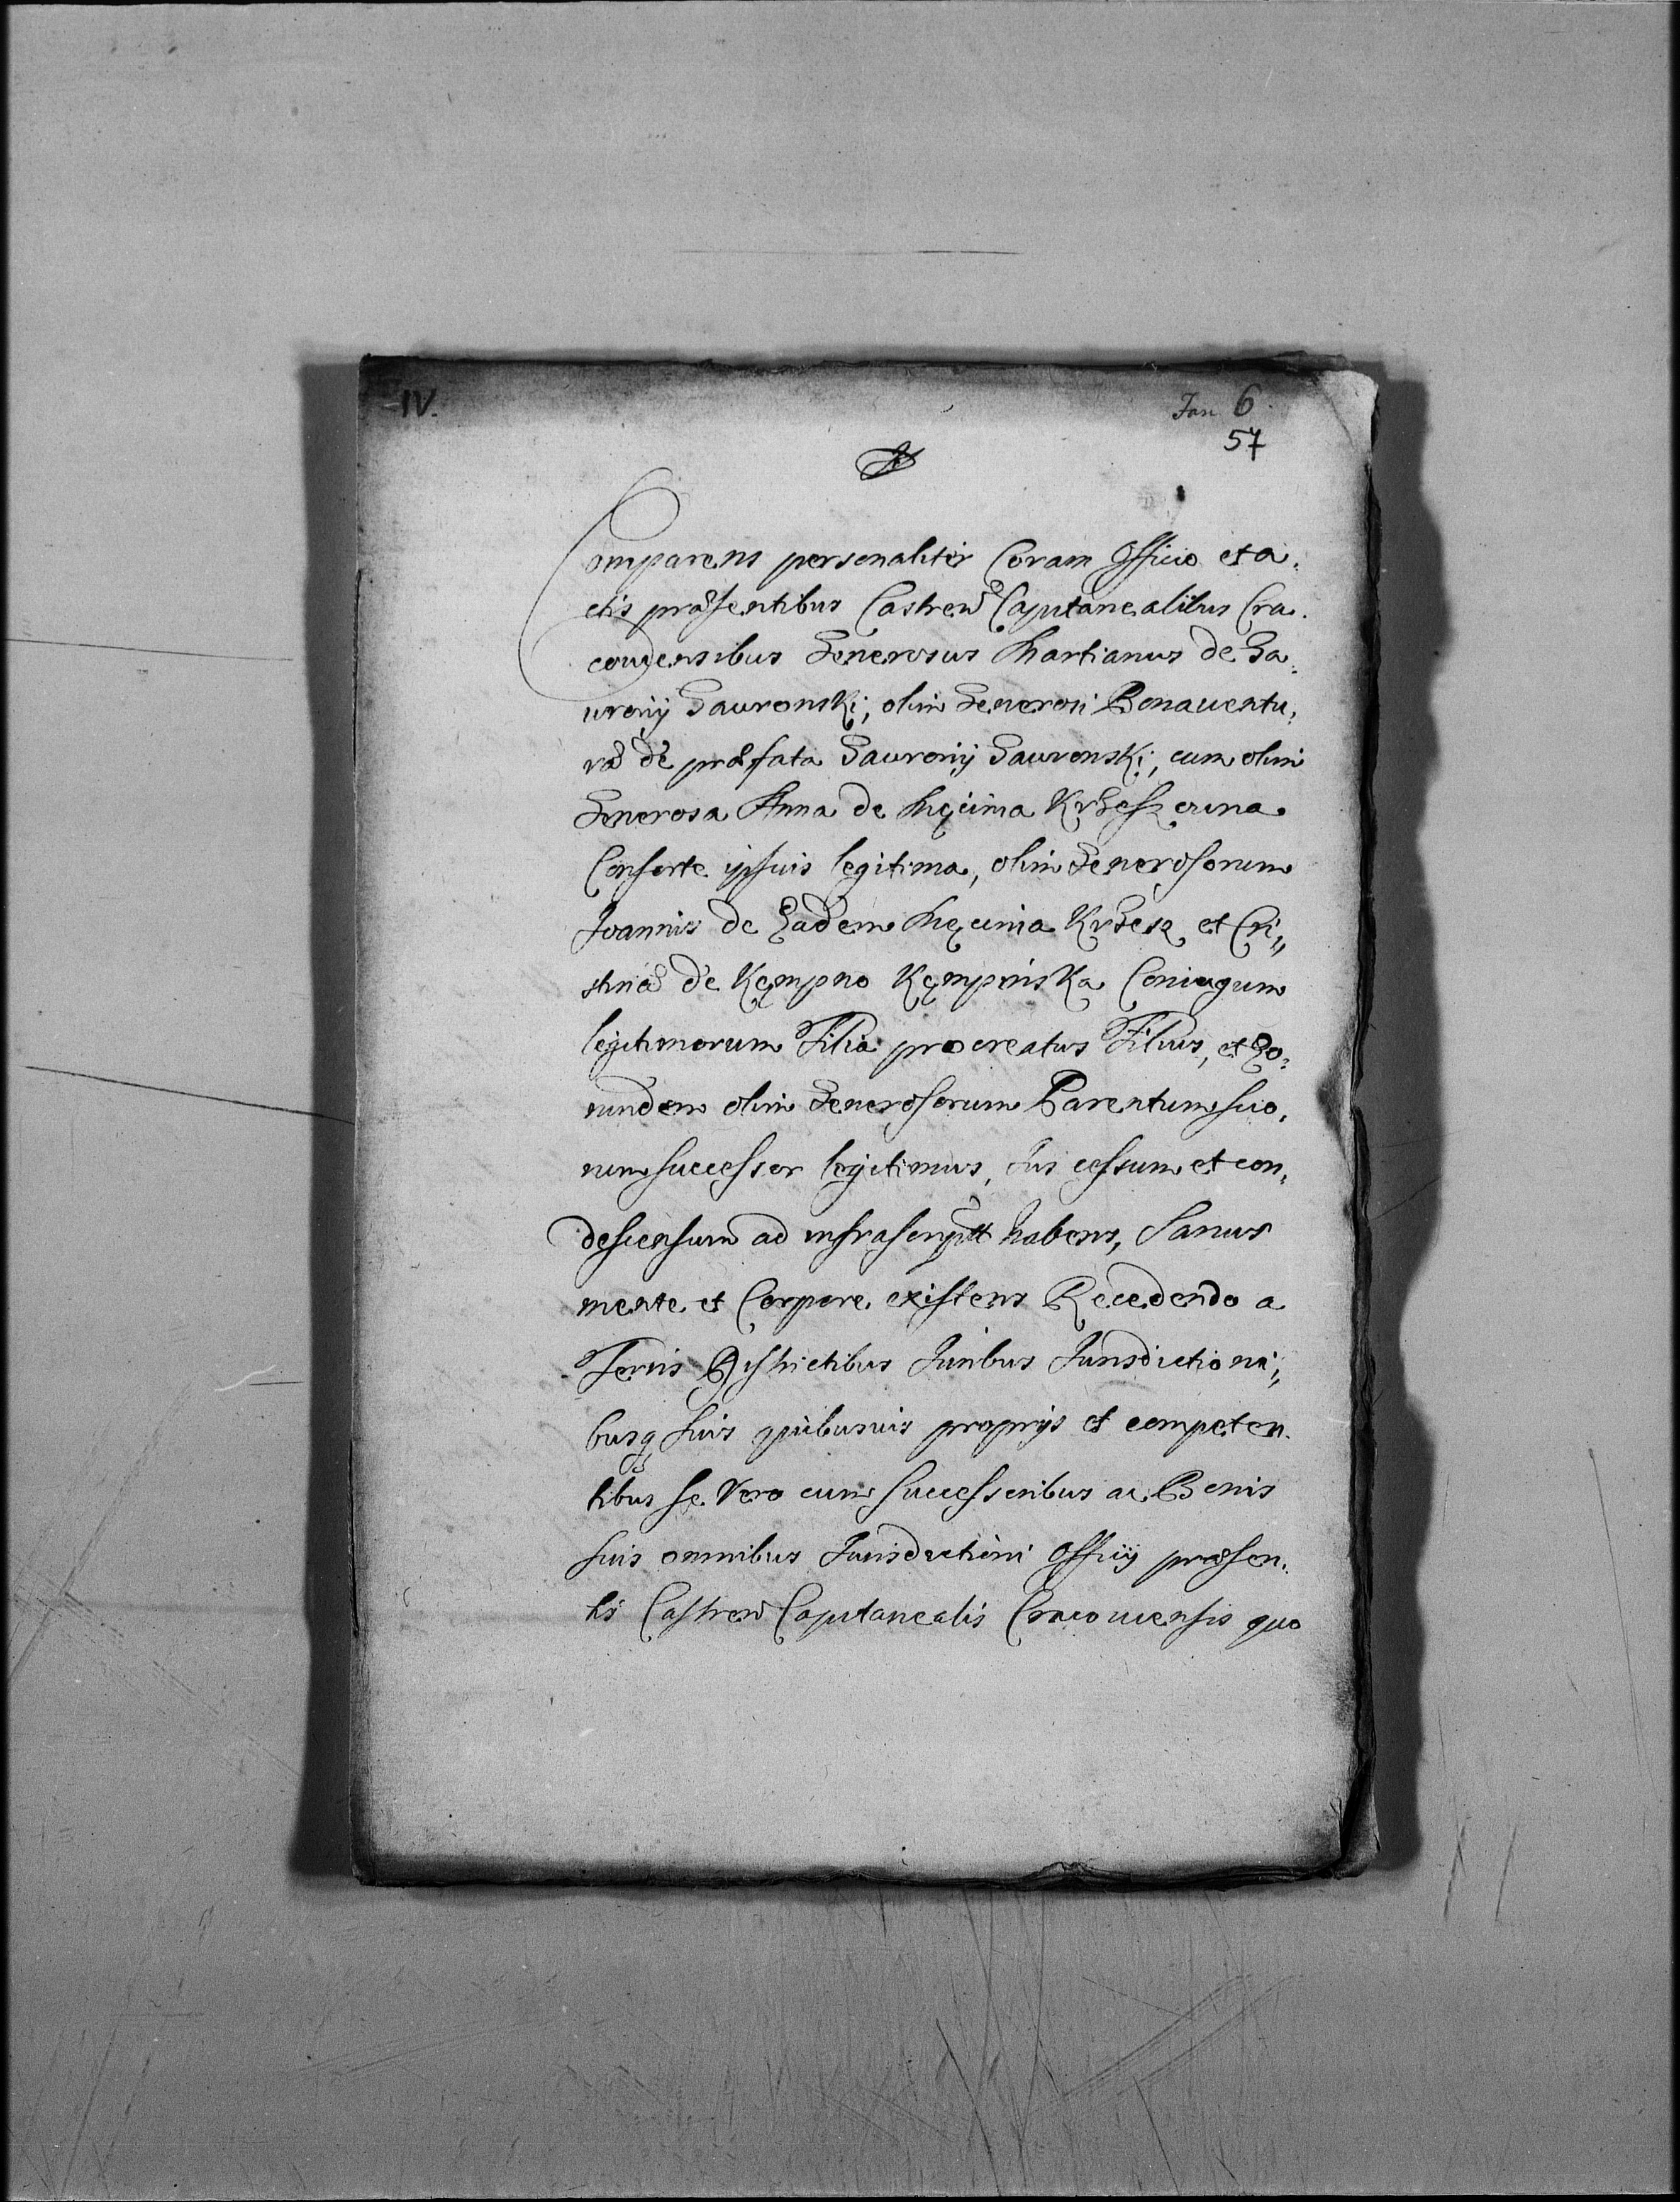 IV.
Jan 6
57
Comparens personaliter Coram Officio et a,
ctis præsentibus Castren Capitanealibus Cra,
couiensibus Generosus Martianus de Ga,
urony Gauronski, olim Generosi Bonauentu,
ræ de præfata Gaurony Gauronski, cum olim
Generosa Anna de Męcima Krzeszowna
Consorte ipsius legitima, olim Generosorum
Joannis de Eadem Męcima Krzesz et Cri,,
stinæ de Kęmpno Kęmpinska Coniugum
legitimorum Filia procreatus Filius, et Eo,
rundem olim Generosorum Parentum suo,
rum successor legitimus, Jus cessum et con,
descensum ad infrascriptt habens, Sanus
mente et Corpore existens Recedendo a
Terris Districtibus Juribus Jurisdictioni,,
busq suis quibusuis proprijs et competen,
tibus se Vero cum successoribus ac Bonis
suis omnibus Jurisdictioni Officij præsen,
tis Castren Capitanealis Cracouiensis quo